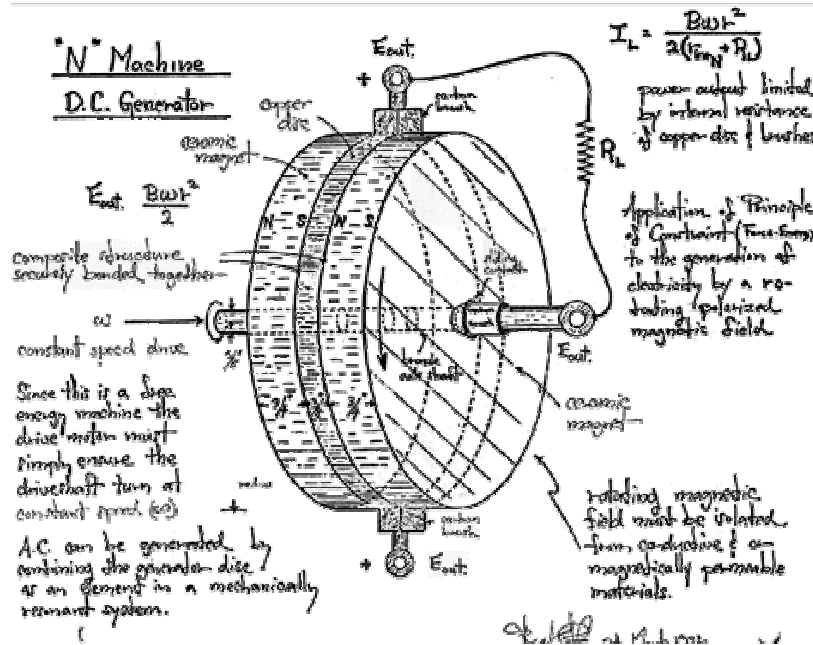 "N" Machine
D.C. Generator
Eout.
+
carbon
brush
copper
disc
ceramic
magnet
Eout. Bwr²
2
N S N S
composite structure
securely bonded together
ω
constant speed drive
3/8"
Since this is a free
energy machine the
drive motor must
simply ensure the
driveshaft turn at
constant speed (ω)
radius
A.C. can be generated by
combining the generator disc
as an element in a mechanically
resonant system.
3/4" 3/4"
sliding
brush
shaft
Eout.
-
ceramic
magnet
carbon
brush
+
Eout.
IL = Bwr²
2( + RL)
power output limited
by internal resistance
of copper disc & brushes
RL
Application of Principle
of Constraint (Force-Energy)
to the generation of
electricity by a ro-
tating polarized
magnetic field
rotating magnetic
field must be isolated
from conductive &
magnetically permeable
materials.